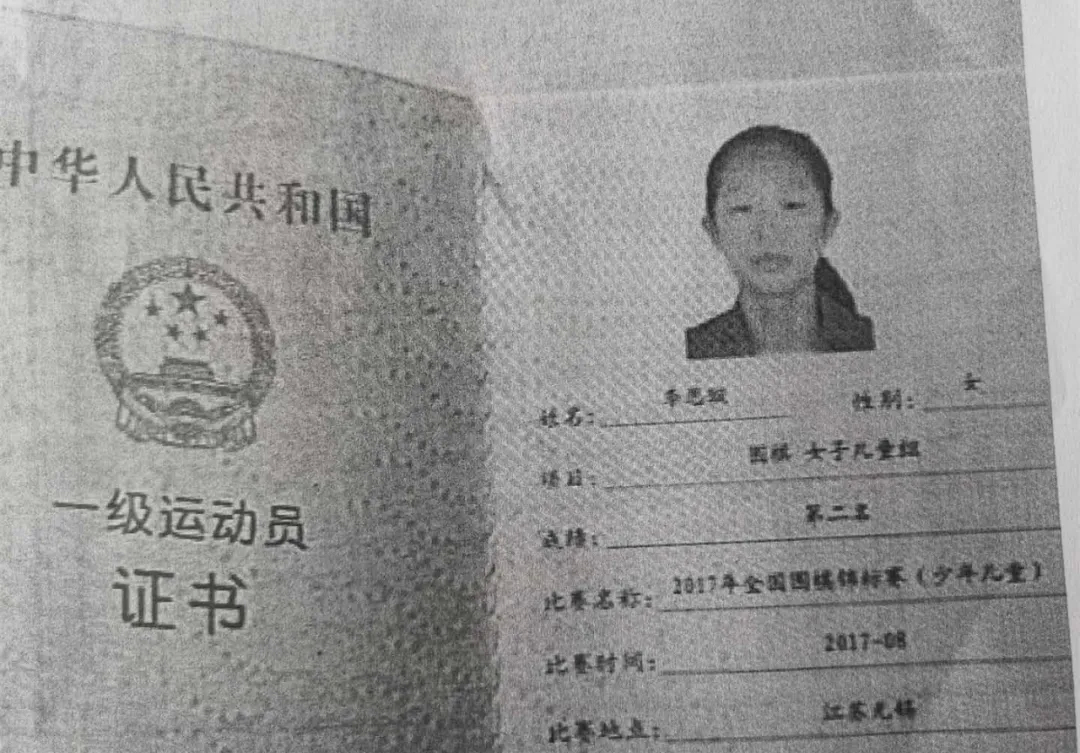 中华人民共和国
一级运动员
证书
姓名： 李思
性别： 女
项目： 围棋 女子儿童组
成绩： 第二名
比赛名称： 2017年全国围棋锦标赛（少年儿童）
比赛时间： 2017-08
比赛地点： 江苏无锡